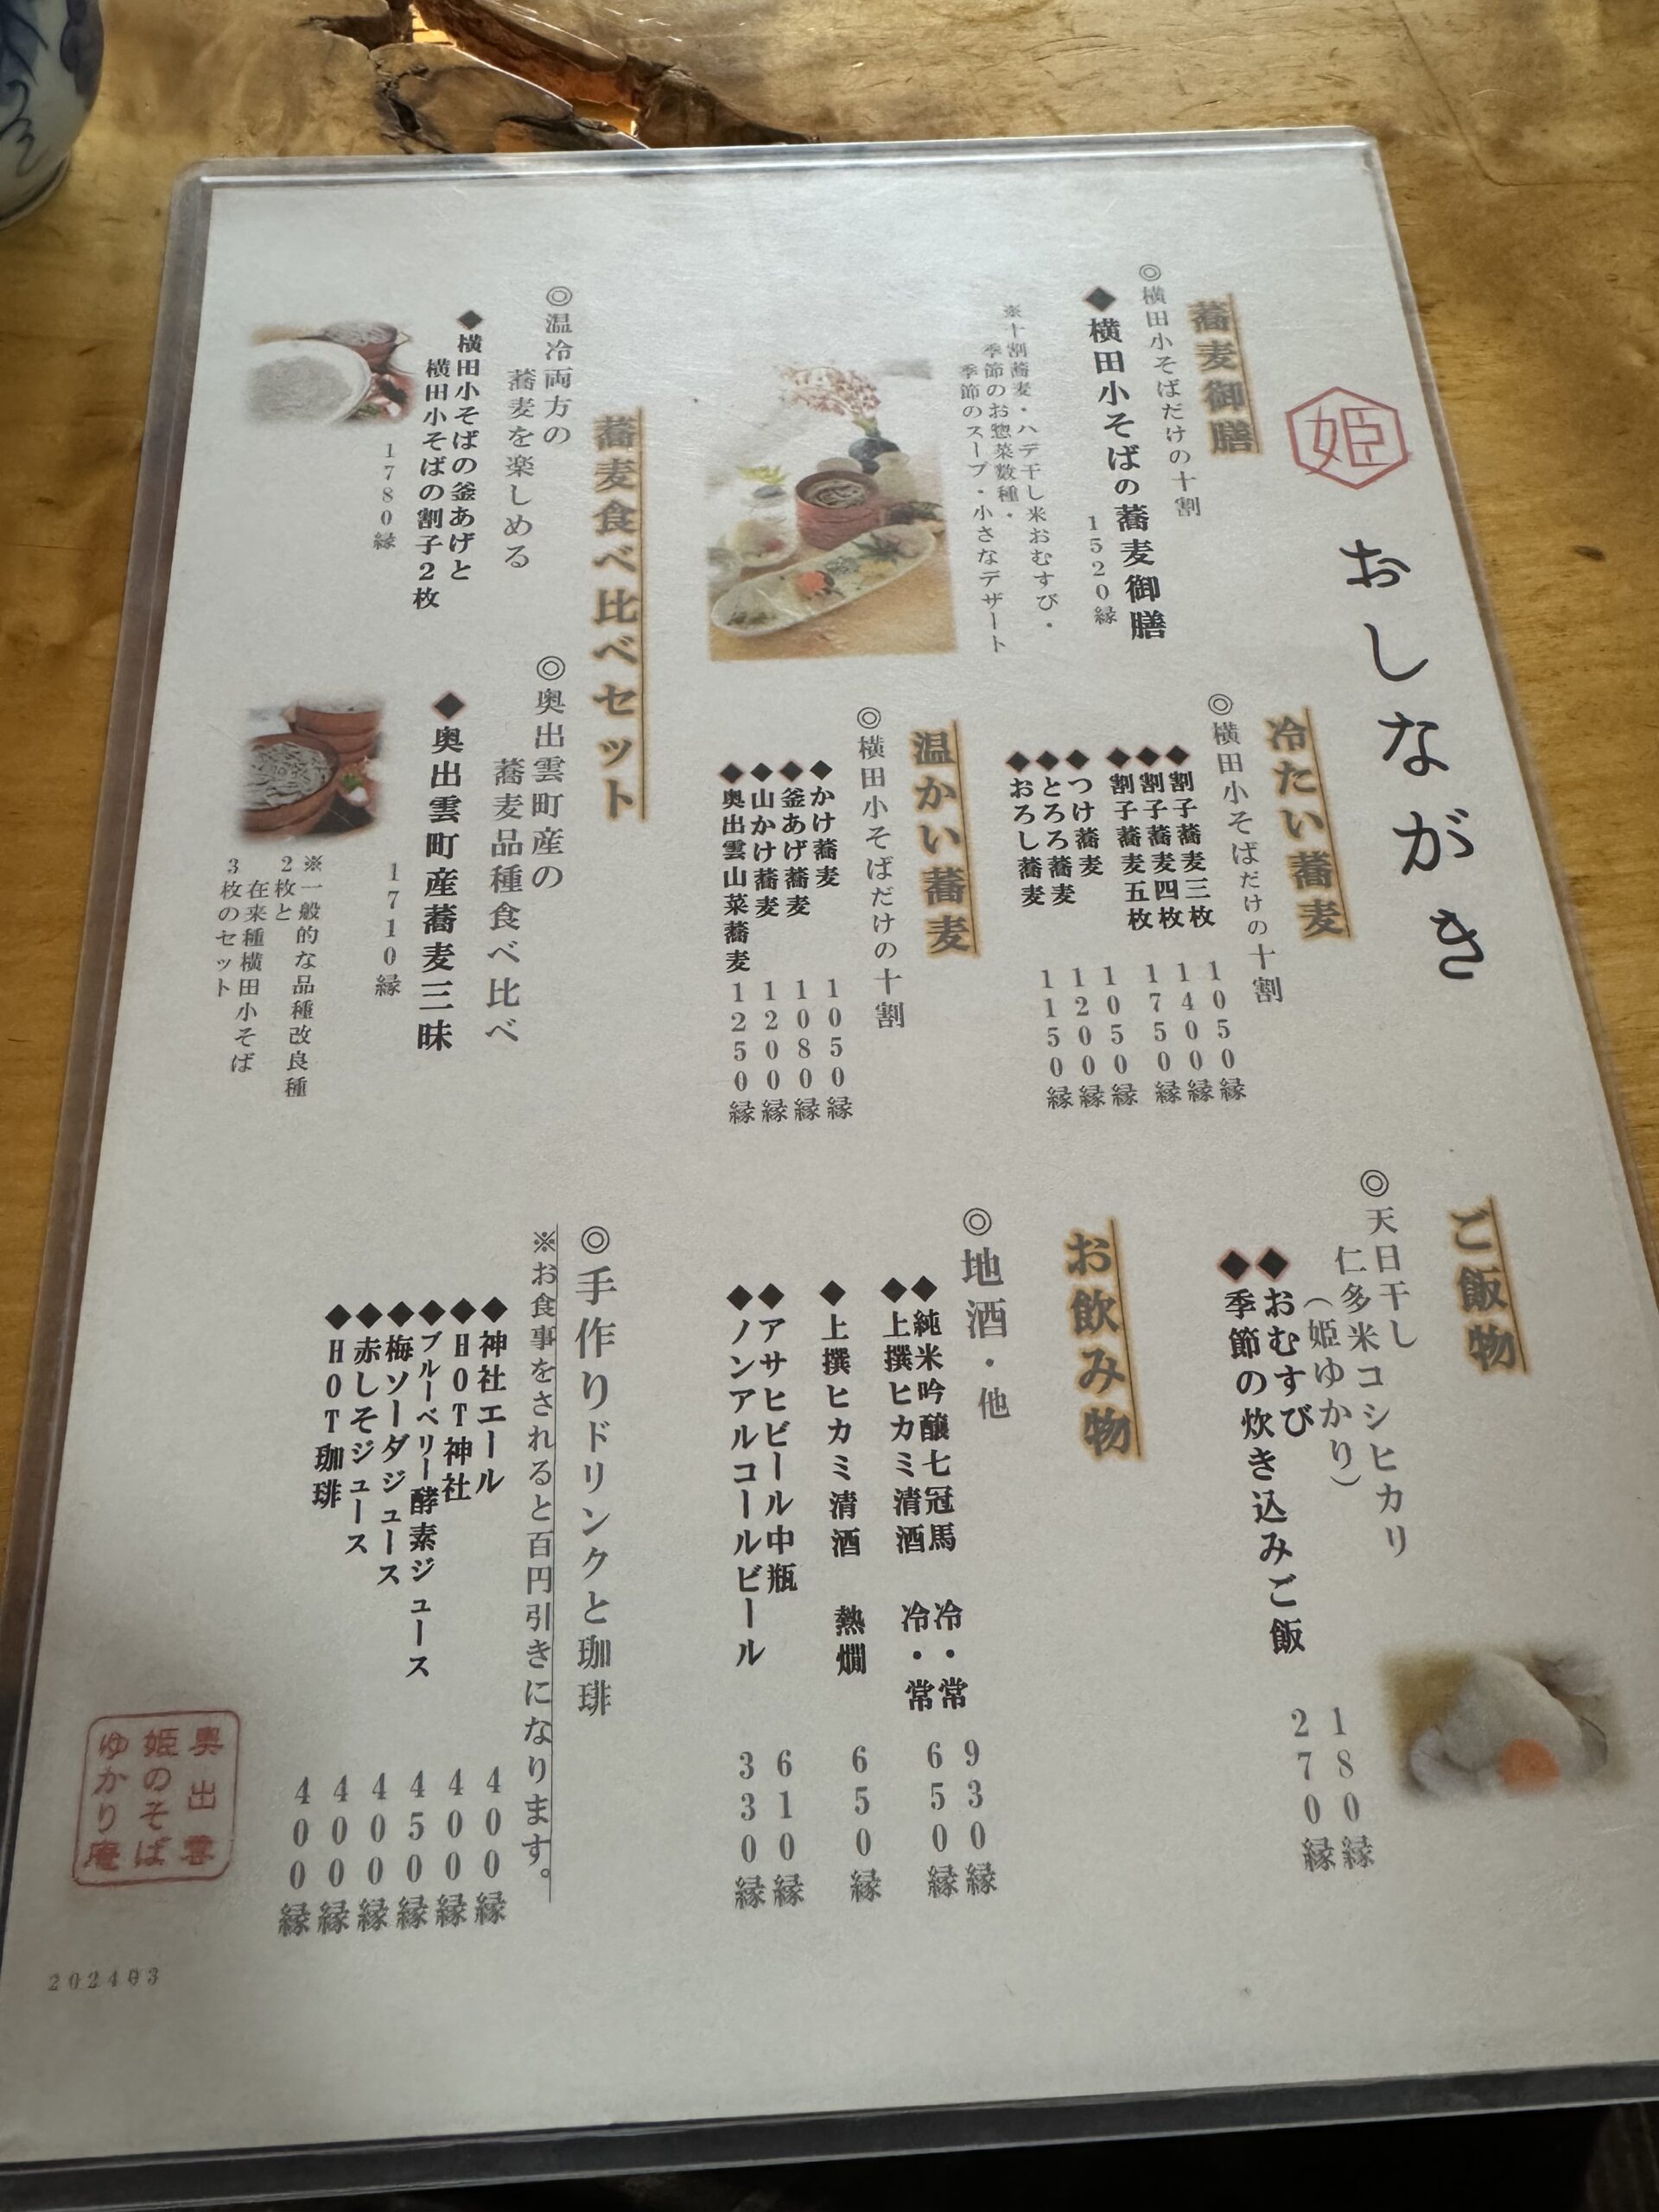 姫
おしながき
蕎麦御膳
◎横田小そばだけの十割
◆横田小そばの蕎麦御膳
1520縁
※十割蕎麦・ハデ干し米おむすび・
季節のお惣菜数種・
季節のスープ・小さなデザート
冷たい蕎麦
◎横田小そばだけの十割
◆割子蕎麦三枚 1050縁
◆割子蕎麦四枚 1400縁
◆割子蕎麦五枚 1750縁
◆つけ蕎麦 1050縁
◆とろろ蕎麦 1200縁
◆おろし蕎麦 1150縁
温かい蕎麦
◎横田小そばだけの十割
◆かけ蕎麦 1050縁
◆釜あげ蕎麦 1080縁
◆山かけ蕎麦 1200縁
◆奥出雲山菜蕎麦 1250縁
蕎麦食べ比べセット
◎温冷両方の
蕎麦を楽しめる
◆横田小そばの釜あげと
横田小そばの割子2枚
1780縁
◎奥出雲町産の
蕎麦品種食べ比べ
◆奥出雲町産蕎麦三昧
1710縁
※一般的な品種改良種
2枚と
在来種横田小そば
3枚のセット
ご飯物
◎天日干し
仁多米コシヒカリ
(姫ゆかり)
◆おむすび 180縁
◆季節の炊き込みご飯 270縁
お飲み物
◎地酒・他
◆純米吟醸七冠馬 冷・常 930縁
◆上撰ヒカミ清酒 冷・常 650縁
◆上撰ヒカミ清酒 熱燗 650縁
◆アサヒビール中瓶 610縁
◆ノンアルコールビール 330縁
◎手作りドリンクと珈琲
※お食事をされると百円引きになります。
◆神社エール 400縁
◆HOT神社 400縁
◆ブルーベリー酵素ジュース 450縁
◆梅ソーダジュース 400縁
◆赤しそジュース 400縁
◆HOT珈琲 400縁
奥出雲
姫のそば
ゆかり庵
202403